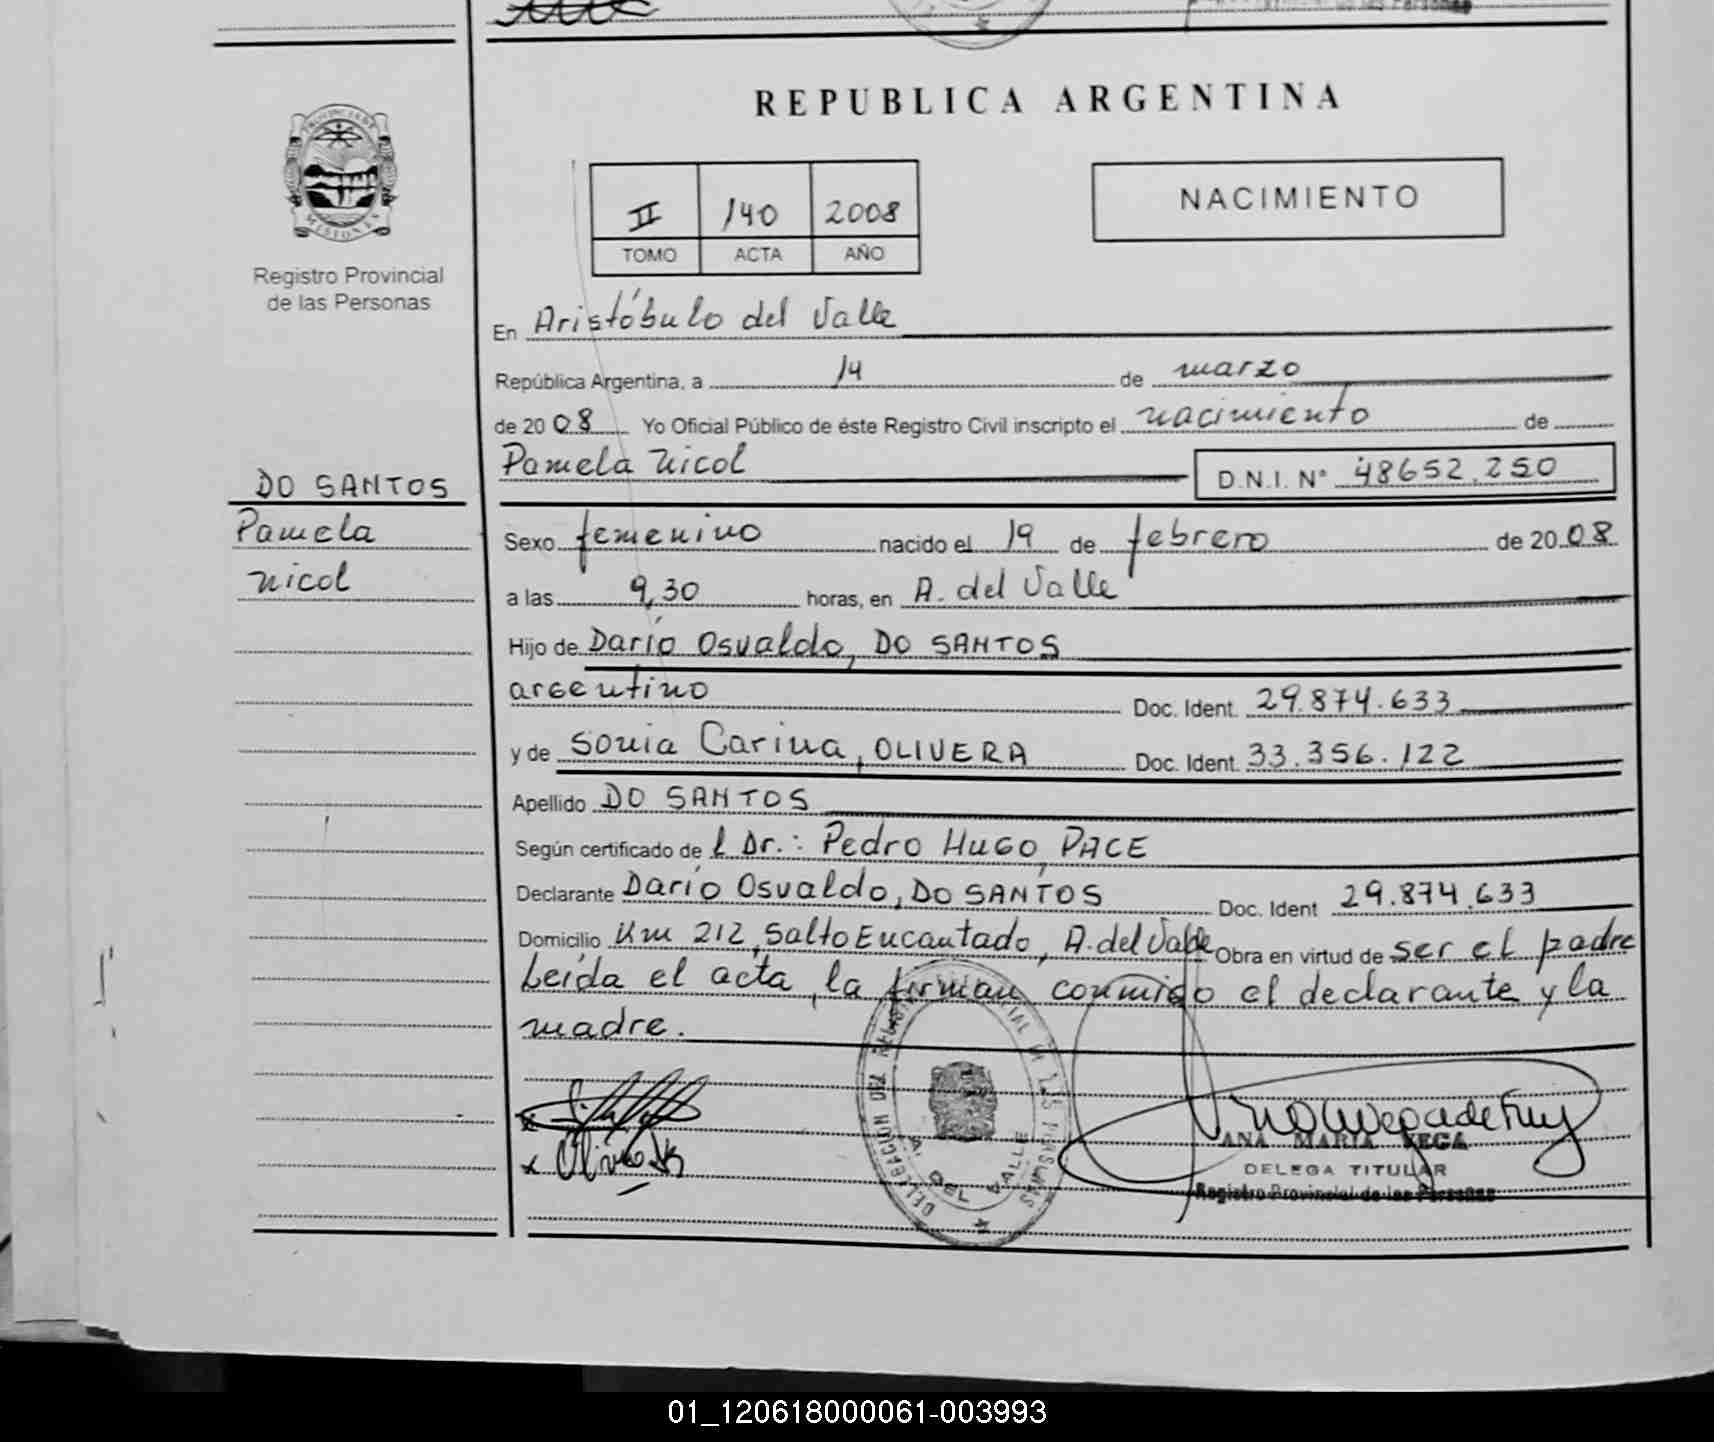 REPUBLICA ARGENTINA
PROVINCIA DE
MISIONES
Registro Provincial
de las Personas
II 140 2008
TOMO ACTA AÑO
NACIMIENTO
En Aristóbulo del Valle
República Argentina, a 14 de marzo
de 2008 Yo Oficial Público de éste Registro Civil inscripto el nacimiento de
Pamela Nicol D.N.I. N° 48652.250
DO SANTOS
Pamela
Nicol
Sexo femenino nacido el 19 de febrero de 2008
a las 9,30 horas, en A. del Valle
Hijo de Darío Osvaldo, DO SANTOS
argentino Doc. Ident. 29.874.633
y de Sonia Carina, OLIVERA Doc. Ident. 33.356.122
Apellido DO SANTOS
Según certificado de l Dr.: Pedro Hugo, PACE
Declarante Darío Osvaldo, DO SANTOS Doc. Ident 29.874.633
Domicilio Km 212, Salto Encantado, A. del Valle Obra en virtud de ser el padre
Leída el acta, la firman conmigo el declarante y la
madre.
DELEGACION DEL
A. DEL VALLE
ANA MARIA VEGA
DELEGA TITULAR
Registro Provincial de las Personas
01_120618000061-003993